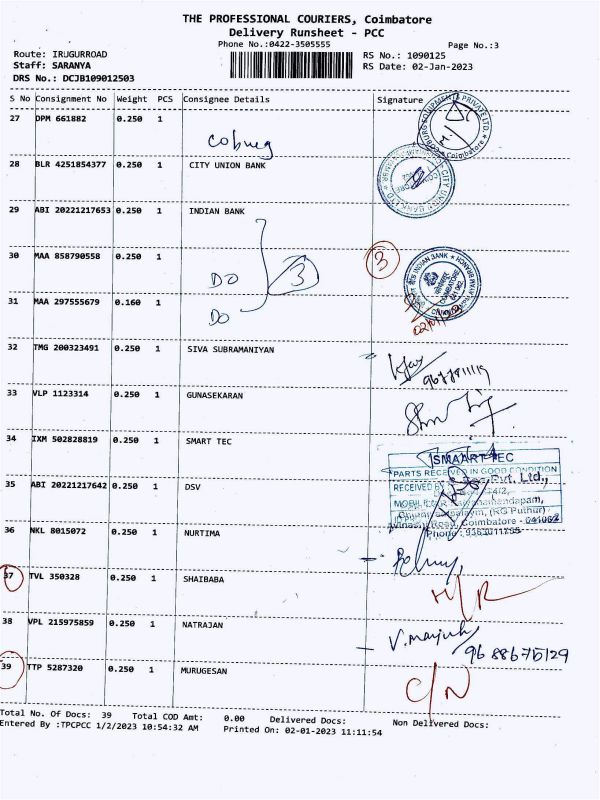 THE PROFESSIONAL COURIERS, Coimbatore
Delivery Runsheet - PCC
Phone No.:0422-3505555
Page No.:3
Route: IRUGURROAD
Staff: SARANYA
DRS No.: DCJB109012503
RS No.: 1090125
RS Date: 02-Jan-2023
S No Consignment No Weight PCS Consignee Details Signature
27 DPM 661882 0.250 1
Coburg
28 BLR 4251854377 0.250 1 CITY UNION BANK
29 ABI 20221217653 0.250 1 INDIAN BANK
30 MAA 858790558 0.250 1
DO 3 3
31 MAA 297555679 0.160 1
DO
32 TMG 200323491 0.250 1 SIVA SUBRAMANIYAN
33 VLP 1123314 0.250 1 GUNASEKARAN
34 IXM 502828819 0.250 1 SMART TEC
SMAART TEC
PARTS RECEIVED IN GOOD CONDITION
RECEIVED BY
35 ABI 20221217642 0.250 1 DSV
Pvt. Ltd.,
Coimbatore - 641062
36 NKL 8015072 0.250 1 NURTIMA
37 TVL 350328 0.250 1 SHAIBABA
38 VPL 215975859 0.250 1 NATRAJAN
9688675129
39 TTP 5287320 0.250 1 MURUGESAN
C/N
Total No. Of Docs: 39 Total COD Amt: 0.00 Delivered Docs: Non Delivered Docs:
Entered By :TPCPCC 1/2/2023 10:54:32 AM Printed On: 02-01-2023 11:11:54